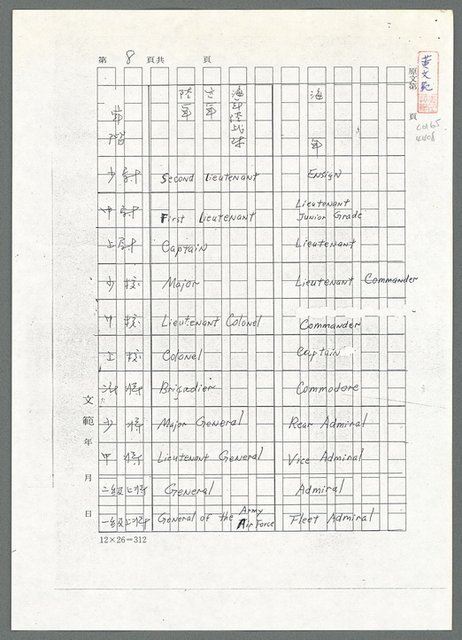 第 8 頁共 頁
原文第 頁
黃文範
軍階 陸軍 空軍 海軍陸戰隊 海軍
少尉 Second Lieutenant Ensign
中尉 First Lieutenant Lieutenant Junior Grade
上尉 Captain Lieutenant
少校 Major Lieutenant Commander
中校 Lieutenant Colonel Commander
上校 Colonel Captain
准將 Brigadier Commodore
少將 Major General Rear Admiral
中將 Lieutenant General Vice Admiral
二級上將 General Admiral
一級上將 General of the Army Air Force Fleet Admiral
文範 年 月 日
12×26=312